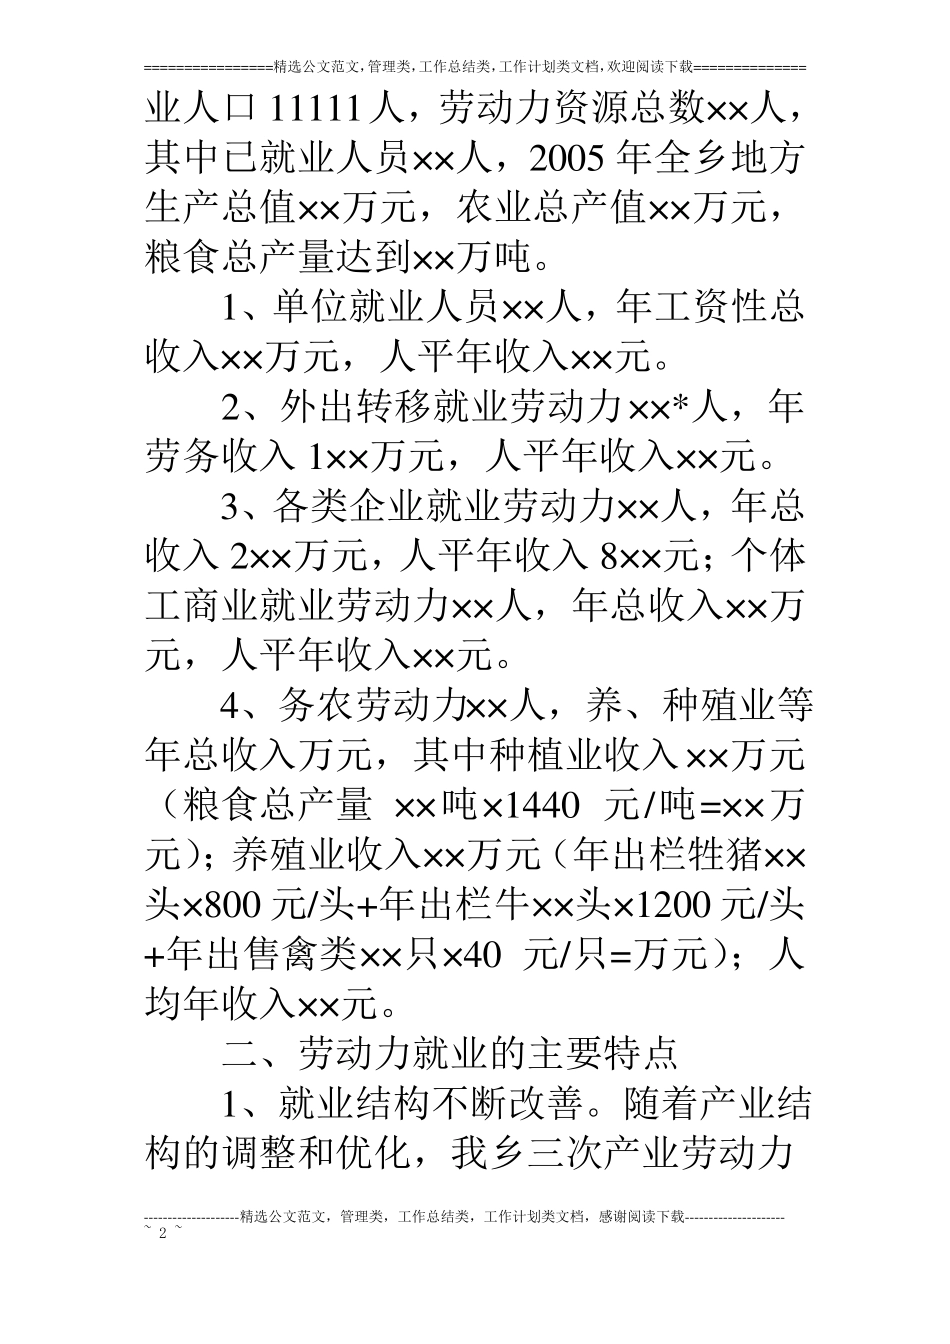 ================精选公文范文，管理类，工作总结类，工作计划类文档，欢迎阅读下载==============
业人口 11111 人，劳动力资源总数××人，
其中已就业人员××人，2005 年全乡地方
生产总值××万元，农业总产值××万元，
粮食总产量达到××万吨。
1、单位就业人员××人，年工资性总
收入××万元，人平年收入××元。
2、外出转移就业劳动力××*人，年
劳务收入 1××万元，人平年收入××元。
3、各类企业就业劳动力××人，年总
收入 2××万元，人平年收入 8××元；个体
工商业就业劳动力××人，年总收入××万
元，人平年收入××元。
4、务农劳动力××人，养、种殖业等
年总收入万元，其中种植业收入××万元
（粮食总产量 ××吨×1440 元/吨=××万
元）；养殖业收入××万元（年出栏牲猪××
头×800 元/头+年出栏牛××头×1200 元/头
+年出售禽类××只×40 元/只=万元）；人
均年收入××元。
二、劳动力就业的主要特点
1、就业结构不断改善。随着产业结
构的调整和优化，我乡三次产业劳动力
--------------------精选公文范文，管理类，工作总结类，工作计划类文档，感谢阅读下载---------------------
~ 2 ~